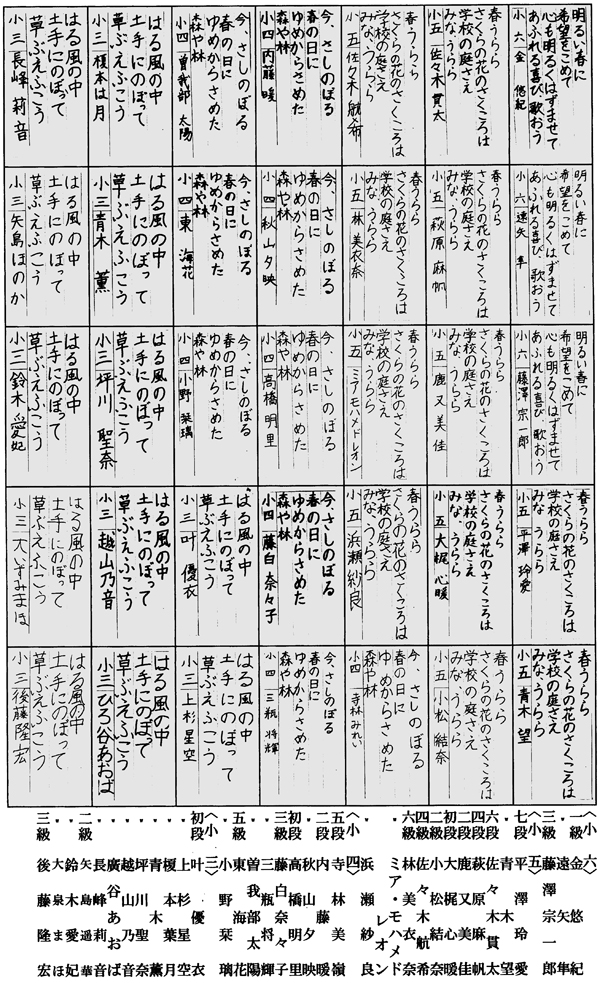 明るい春に
希望をこめて
心も明るくはずませて
あふれる喜び歌おう
小六 金 悠紀
明るい春に
希望をこめて
心も明るくはずませて
あふれる喜び歌おう
小六 遠矢 隼
明るい春に
希望をこめて
心も明るくはずませて
あふれる喜び歌おう
小六 藤澤宗一郎
春うらら
さくらの花のさくころは
学校の庭さえ
みな、うらら
小五 平澤玲愛
春うらら
さくらの花のさくころは
学校の庭さえ
みな、うらら
小五 青木望
春うらら
さくらの花のさくころは
学校の庭さえ
みな、うらら
小五 佐々木貫太
春うらら
さくらの花のさくころは
学校の庭さえ
みな、うらら
小五 萩原麻帆
春うらら
さくらの花のさくころは
学校の庭さえ
みな、うらら
小五 鹿又美佳
春うらら
さくらの花のさくころは
学校の庭さえ
みな、うらら
小五 大梶心暖
春うらら
さくらの花のさくころは
学校の庭さえ
みな、うらら
小五 小松結奈
春うらら
さくらの花のさくころは
学校の庭さえ
みな、うらら
小五 佐々木航希
春うらら
さくらの花のさくころは
学校の庭さえ
みな、うらら
小五 林美衣奈
春うらら
さくらの花のさくころは
学校の庭さえ
みな、うらら
小五 ミアモハメドレオン
春うらら
さくらの花のさくころは
学校の庭さえ
みな、うらら
小五 浜瀬紗良
今、さしのぼる
春の日に
ゆめからさめた
森や林
小四 寺林みれい
今、さしのぼる
春の日に
ゆめからさめた
森や林
小四 内藤暖
今、さしのぼる
春の日に
ゆめからさめた
森や林
小四 秋山夕映
今、さしのぼる
春の日に
ゆめからさめた
森や林
小四 高橋明里
今、さしのぼる
春の日に
ゆめからさめた
森や林
小四 藤白奈々子
今、さしのぼる
春の日に
ゆめからさめた
森や林
小四 三瓶将輝
今、さしのぼる
春の日に
ゆめからさめた
森や林
小四 曽我部太陽
今、さしのぼる
春の日に
ゆめからさめた
森や林
小四 東 海花
今、さしのぼる
春の日に
ゆめからさめた
森や林
小四 小野栞璃
はる風の中
土手にのぼって
草ぶえふこう
小三 叶優衣
はる風の中
土手にのぼって
草ぶえふこう
小三 上杉星空
はる風の中
土手にのぼって
草ぶえふこう
小三 榎本は月
はる風の中
土手にのぼって
草ぶえふこう
小三 青木薫
はる風の中
土手にのぼって
草ぶえふこう
小三 坪川聖奈
はる風の中
土手にのぼって
草ぶえふこう
小三 越山乃音
はる風の中
土手にのぼって
草ぶえふこう
小三 ひろ谷あおば
はる風の中
土手にのぼって
草ぶえふこう
小三 長峰莉音
はる風の中
土手にのぼって
草ぶえふこう
小三 矢島ほのか
はる風の中
土手にのぼって
草ぶえふこう
小三 鈴木愛妃
はる風の中
土手にのぼって
草ぶえふこう
小三 大いずみまほ
はる風の中
土手にのぼって
草ぶえふこう
小三 後藤隆宏
〈小六〉
一級 金悠紀
・ 遠矢隼
三級 藤澤宗一郎
〈小五〉
七段 平澤玲愛
・ 青木望
六段 佐々木貫太
・ 萩原麻帆
二段 鹿又美佳
初段 大梶心暖
二級 小松結奈
四級 佐々木航希
六級 林美衣奈
・ ミア・モハメドレオン
・ 浜瀬紗良
〈小四〉
五段 寺林美嶺
二段 内藤暖
・ 秋山夕映
初段 高橋明里
三級 藤白奈々子
・ 三瓶将輝
・ 曽我部太陽
五級 東海花
・ 小野栞璃
〈小三〉
初段 叶優衣
・ 上杉星空
・ 榎本葉月
・ 青木薫
・ 坪川聖奈
・ 越山乃音
・ 廣谷あおば
・ 長峰莉音
二級 矢島ほの華
・ 鈴木愛妃
・ 大泉まほ
三級 後藤隆宏